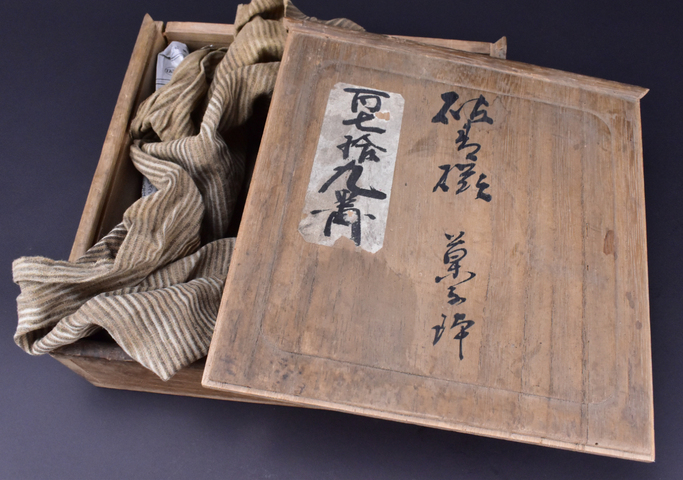 青磁 菓子鉢
百七拾九番